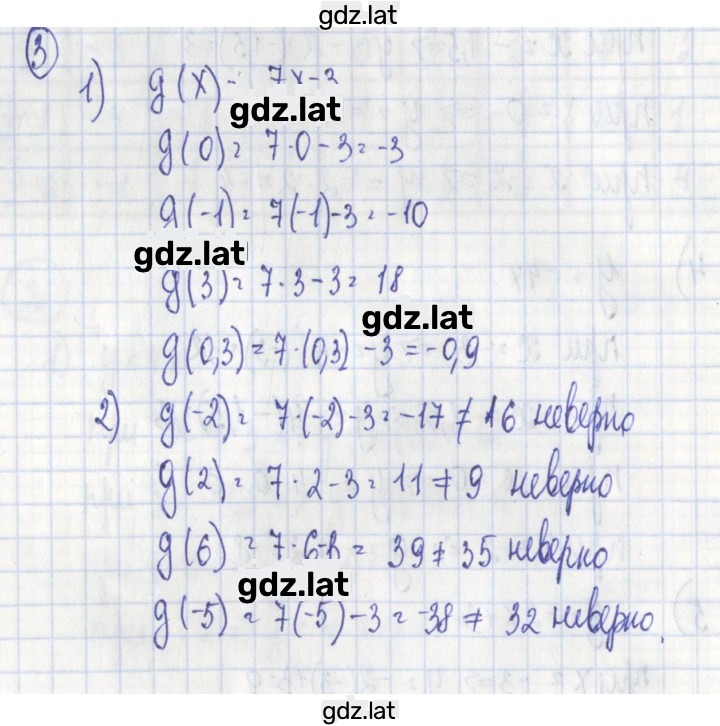 gdz.lat
3
1) g(x) = 7x-3
gdz.lat
g(0) = 7·0-3 = -3
g(-1) = 7(-1)-3 = -10
gdz.lat
g(3) = 7·3-3 = 18
gdz.lat
g(0,3) = 7·(0,3) -3 = -0,9
2) g(-2) = 7·(-2)-3 = -17 ≠ 16 неверно
g(2) = 7·2-3 = 11 ≠ 9 неверно
g(6) = 7·6-3 = 39 ≠ 35 неверно
gdz.lat
g(-5) = 7(-5)-3 = -38 ≠ 32 неверно.
gdz.lat